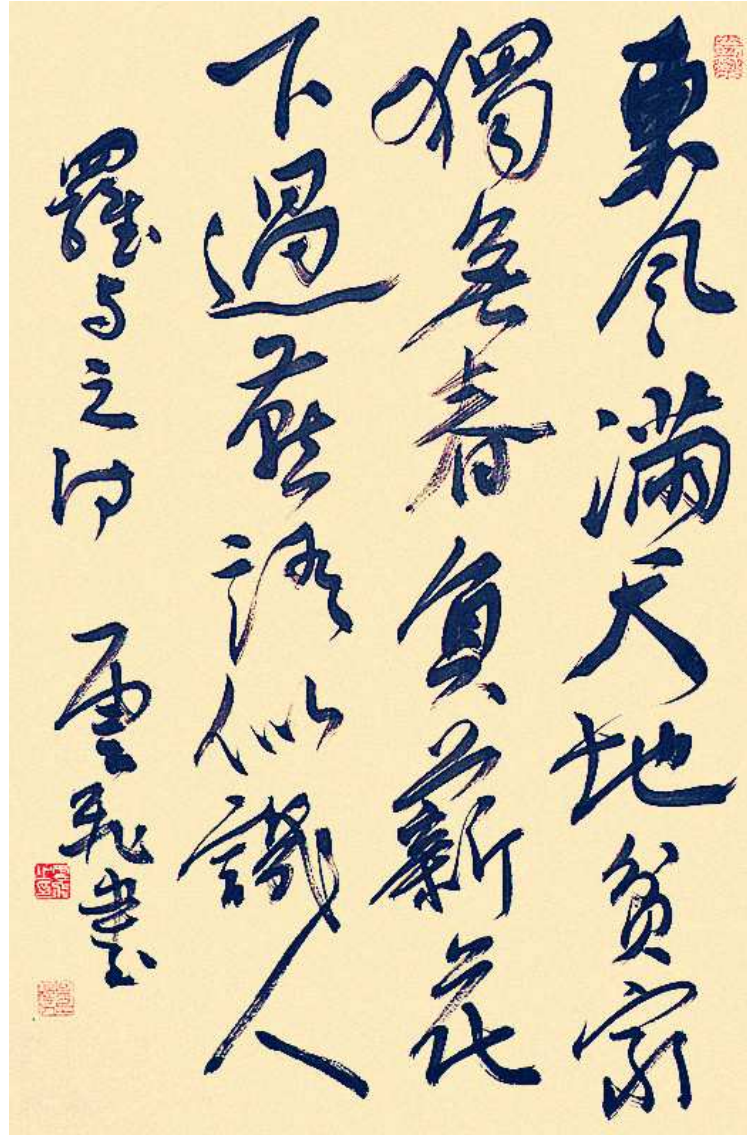 東風滿天地貧家
獨無春負薪花
下過燕語似識人
羅与之詩 雲飛書